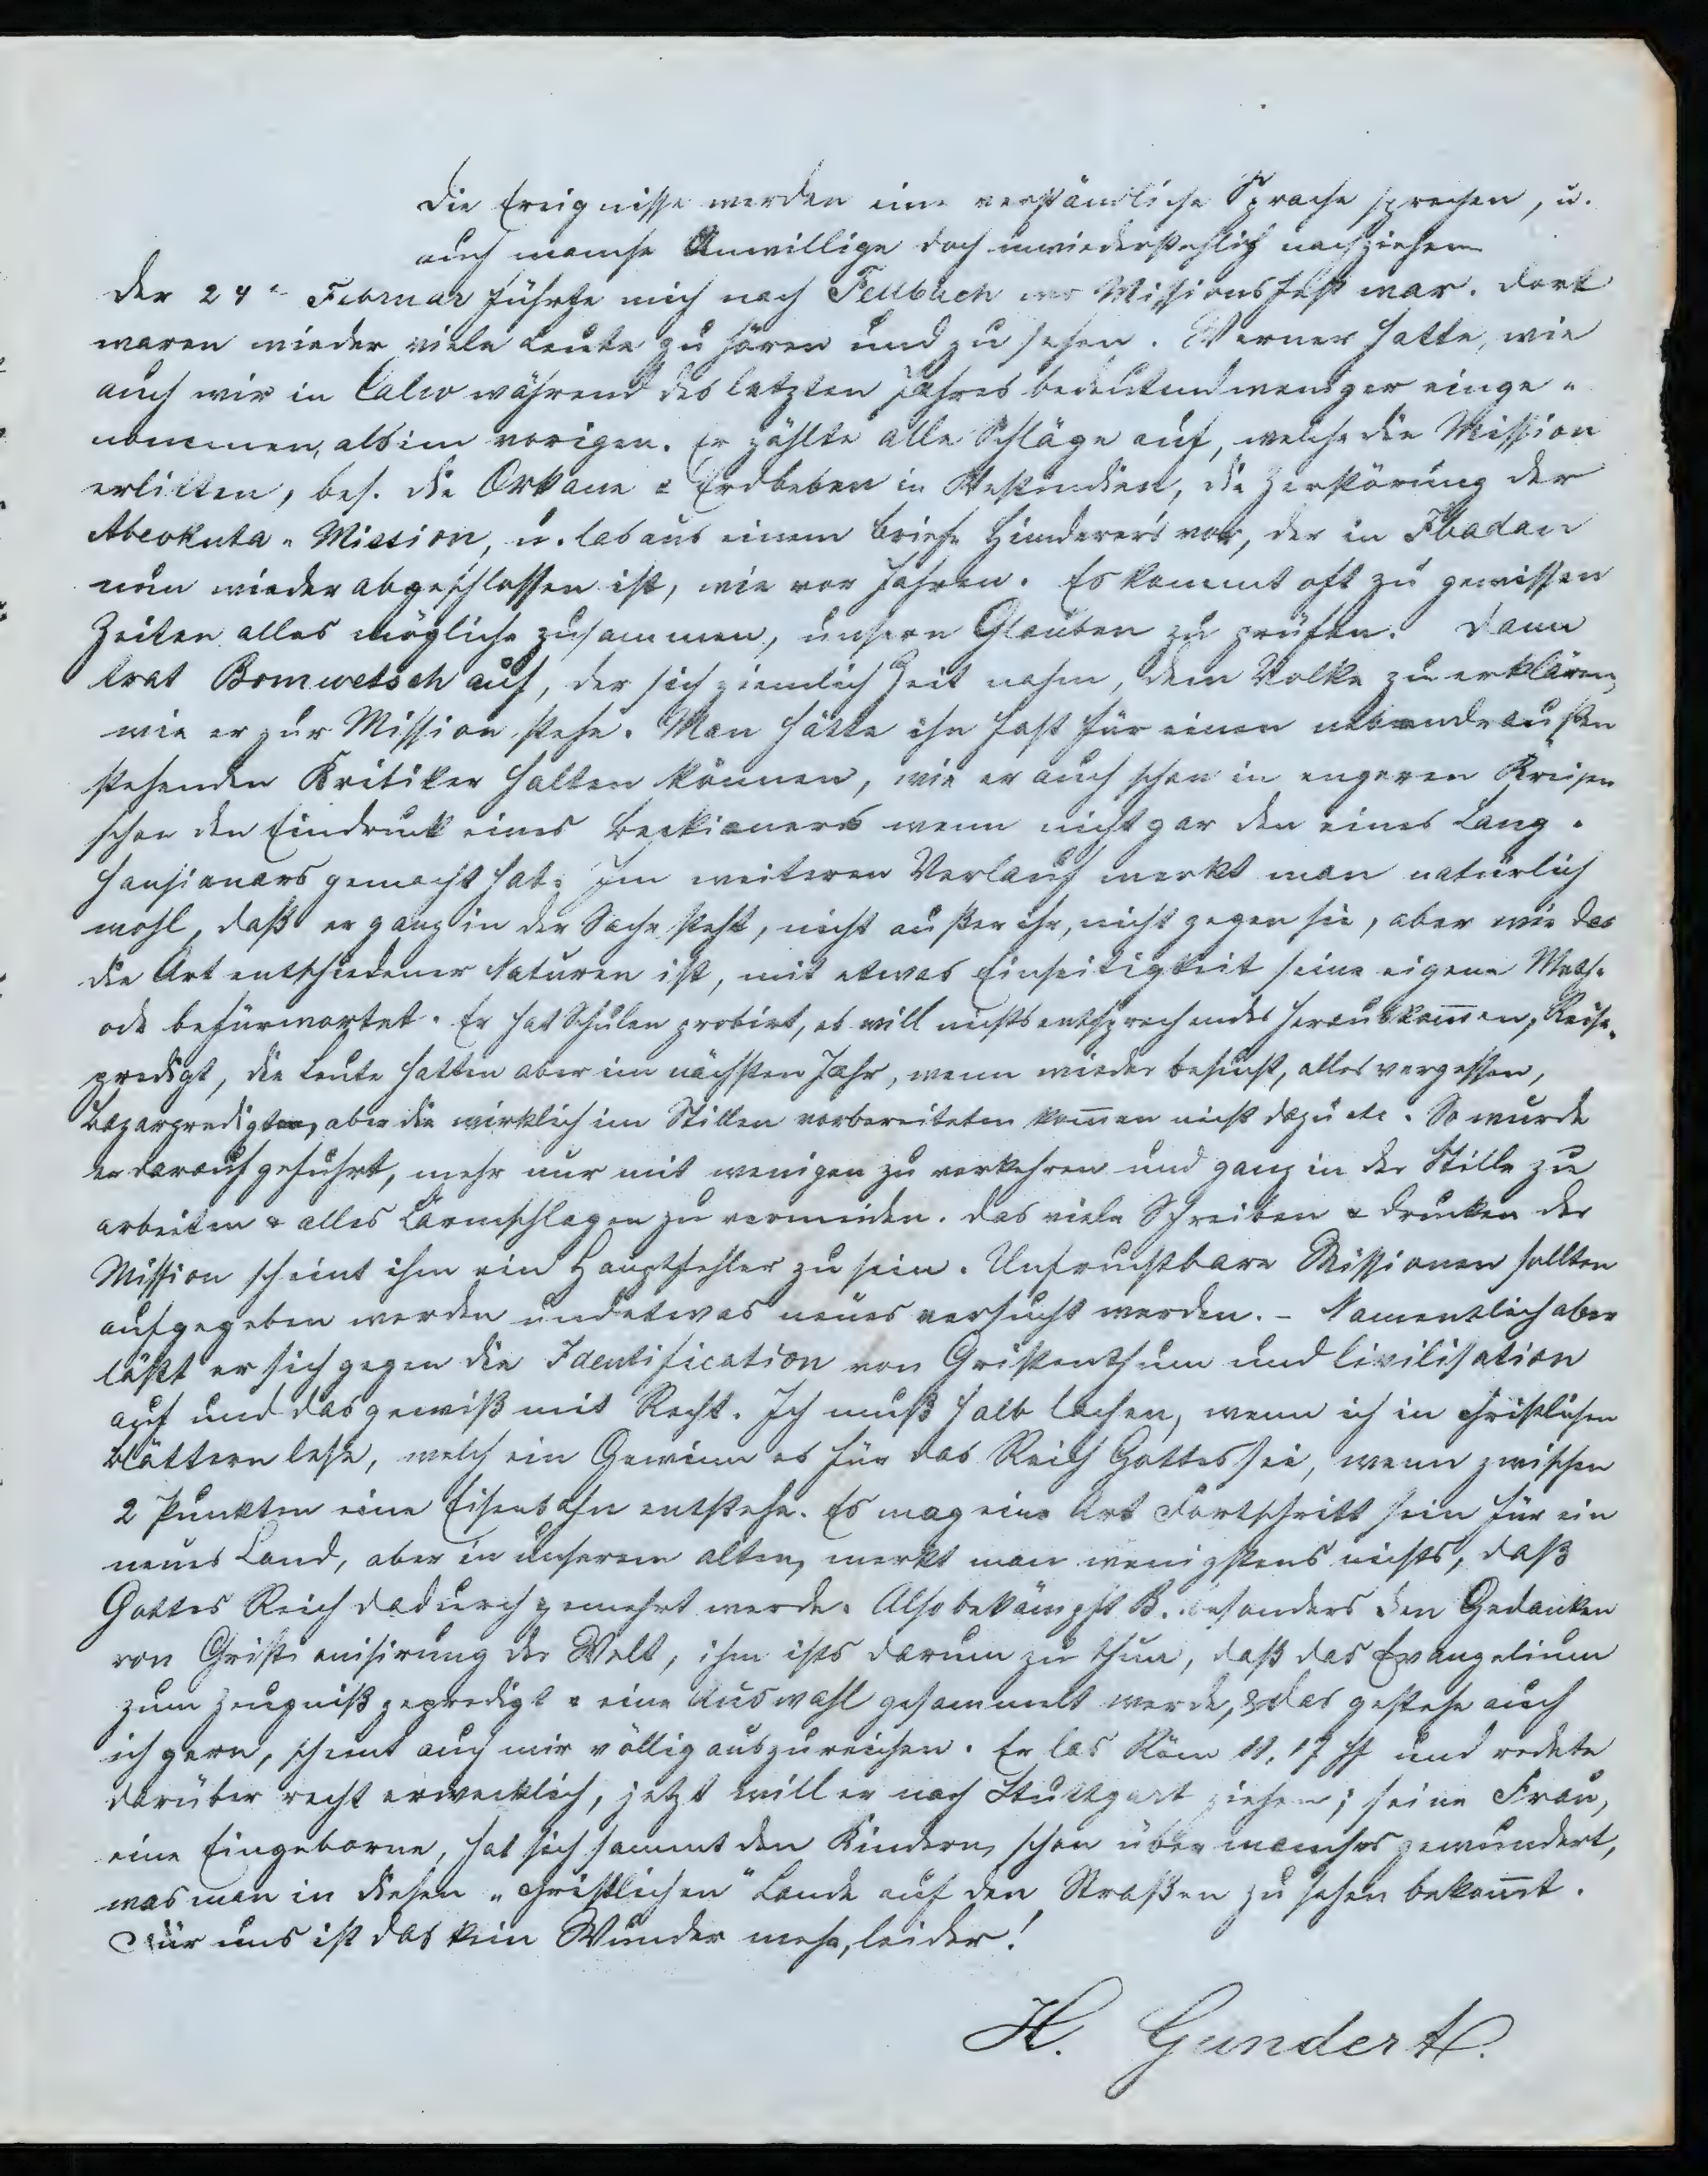 die Ereignisse werden eine verständliche Sprache sprechen, u.
auch manche Unwillige doch unwiederstehlich nachziehen
der 24t Februar führte mich nach Fellbach wo Missionsfest war. dort
waren wieder viele Leute zu hören und zu sehen. Werner hatte, wie
auch wir in Calw während des letzten Jahres bedeutend weniger einge-
nommen, als im vorigen. Er zählte alle Schläge auf, welche die Mission
erlitten, bes. die Orkane & Erdbeben in Westindien, die Zerstörung der
Abeokuta-Mission, u. las aus einem Briefe Hinderer's vor, der in Ibadan
nun wieder abgeschlossen ist, wie vor Jahren. Es kommt oft zu gewissen
Zeiten alles mögliche zusammen, unsern Glauben zu prüfen. Dann
trat Bomwetsch auf, der sich ziemlich Zeit nahm, dem Volke zu erklären,
wie er zur Mission stehe. Man hätte ihn fast für einen nebendraußen
stehenden Kritiker halten können, wie er auch schon in engeren Kreisen
schon den Eindruck eines Beckianers wenn nicht gar den eines Lang-
hansianers gemacht hat. Im weiteren Verlauf merkt man natürlich
wohl, daß er ganz in der Sache steht, nicht außer ihr, nicht gegen sie, aber wie das
die Art entschiedener Naturen ist, mit etwas Einseitigkeit seine eigene Meth-
ode befürwortet. Er hat Schulen probirt, es will nichts entsprechendes herauskom̅en, Reise-
predigt, die Leute hatten aber im nächsten Jahr, wenn wieder besucht, alles vergessen,
Bazarpredigten, aber die wirklich im Stillen vorbereiteten kom̅en nicht dazu etc. So wurde
er darauf geführt, mehr nur mit wenigen zu verkehren und ganz in der Stille zu
arbeiten & alles Lärmschlagen zu vermeiden. das viele Schreiben & drucken der
Mission scheint ihm ein Hauptfehler zu sein. Unfruchtbare Missionen sollten
aufgegeben werden und etwas neues versucht werden. - Namentlich aber
läßt er sich gegen die Identification von Cristenthum und Civilisation
auf und das gewiß mit Recht. Ich muß halb lachen, wenn ich in christlichen
Blättern lese, welch ein Gewinn es für das Reich Gottes sei, wenn zwischen
2 Punkten eine Eisenbahn entstehe. Es mag eine Art Fortschritt sein für ein
neues Land, aber in unserem alten, merkt man wenigstens nichts, daß
Gottes Reich dadurch gemehrt werde. Also bekämpft B. besonders den Gedanken
von Cristianisirung der Welt, ihm ists darum zu thun, daß das Evangelium
zum Zeugniß gepredigt & eine Auswahl gesammelt werde, & das gestehe auch
ich gern, scheint auch mir völlig auszureichen. Er las Röm 11, 17 ff und redete
darüber recht erwecklich, jetzt will er nach Stuttgart ziehen; seine Frau,
eine Eingeborne, hat sich sammt den Kindern, schon über manches gewundert,
was man in diesen „christlichen" Lande auf den Straßen zu sehen bekom̅t.
Für uns ist das kein Wunder mehr, leider!
H. Gundert.